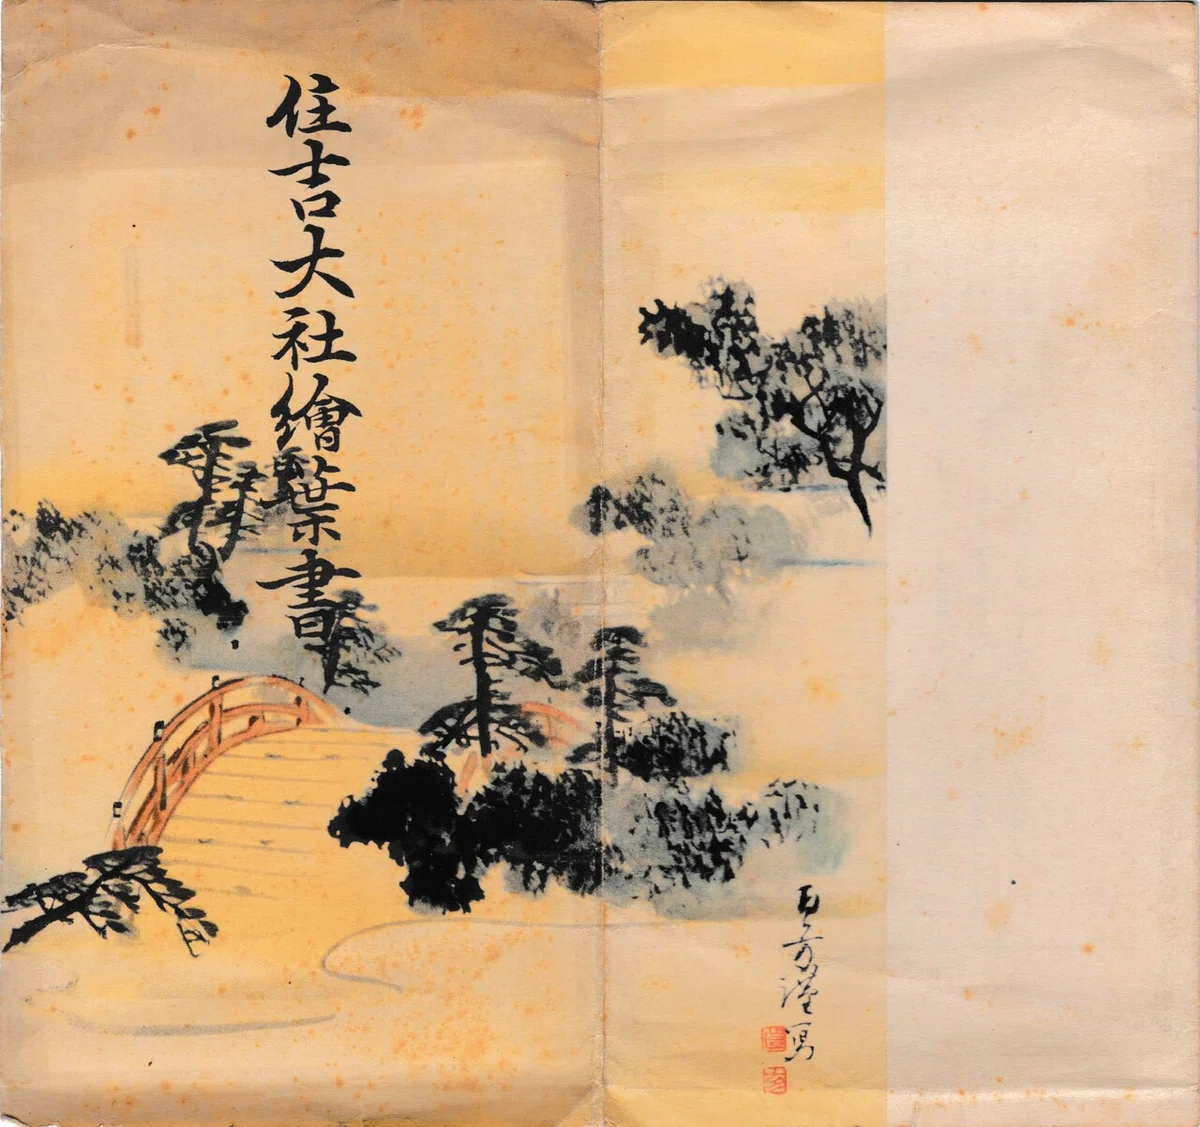 住吉大社繪葉書
謹寫